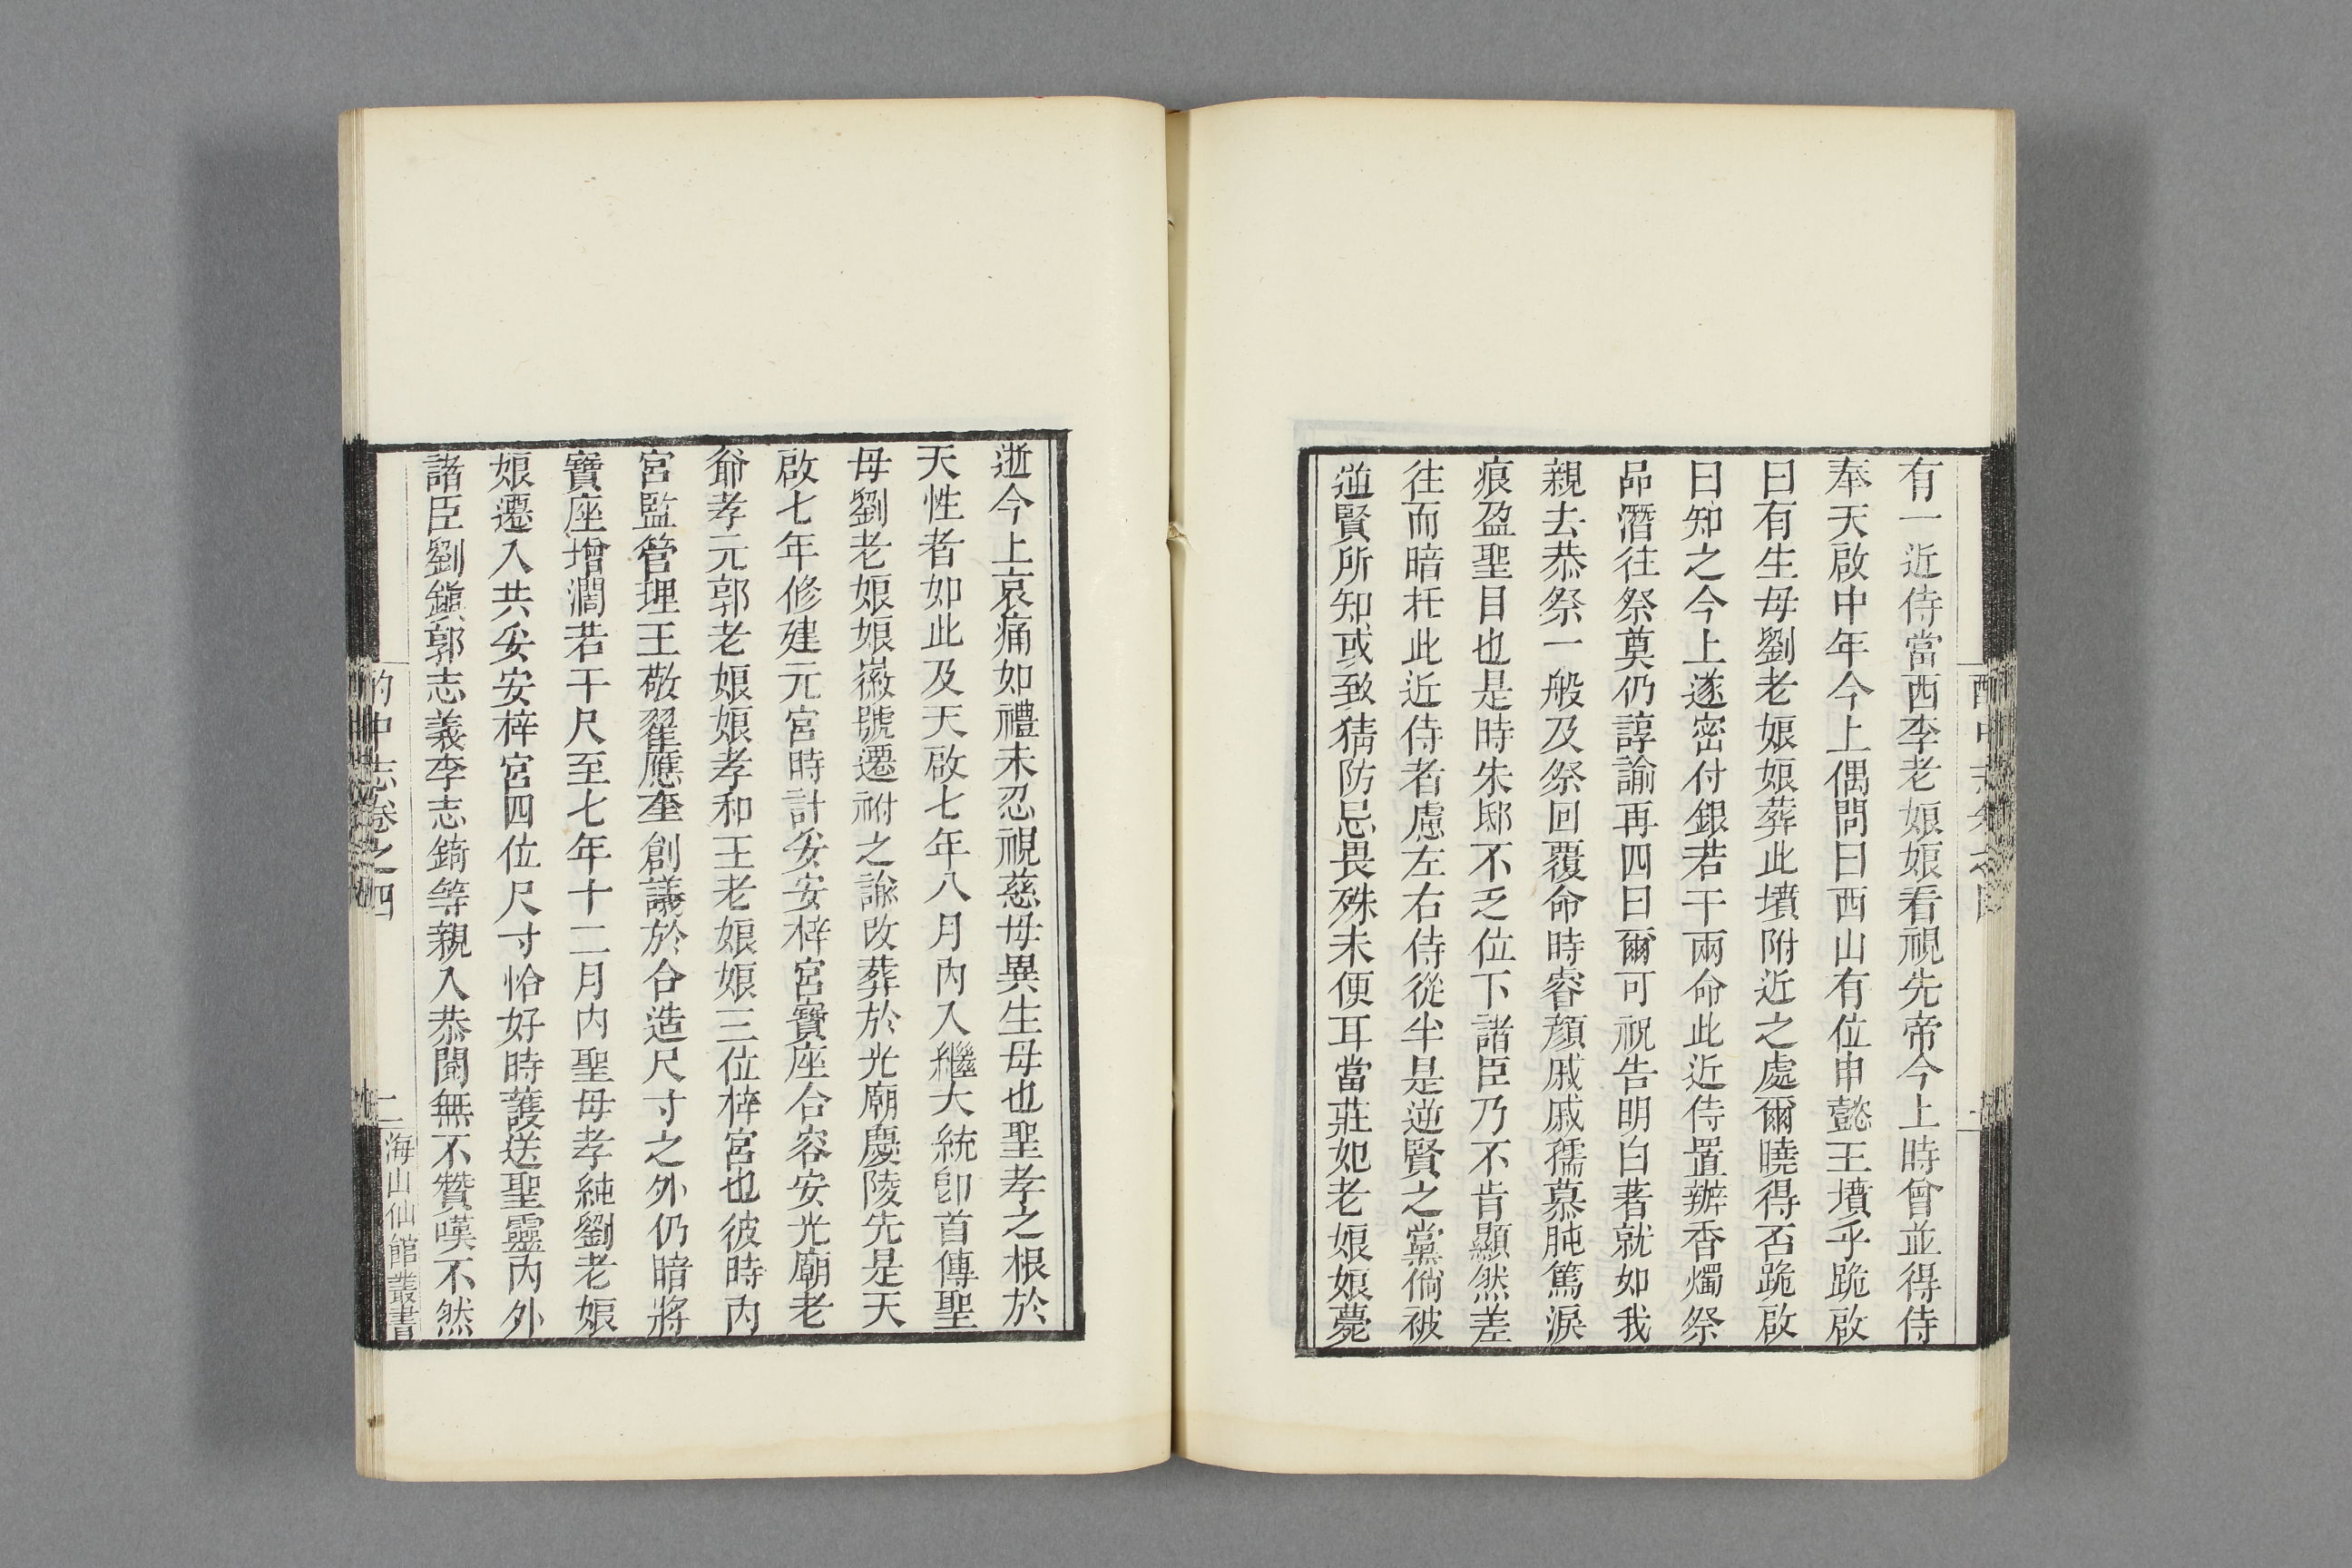 有一近侍當西李老娘娘看視先帝今上時曾並得侍
奉天啟中年今上偶問曰西山有位申懿王墳乎跪啟
曰有生母劉老娘娘葬此墳附近之處爾曉得否跪啟
曰知之今上遂密付銀若干兩命此近侍置辦香燭祭
品潛往祭奠仍諄諭再四曰爾可祝告明白著就如我
親去恭祭一般及祭回覆命時睿顏戚戚孺慕肫篤淚
痕盈聖目也是時朱邸不乏位下諸臣乃不肯顯然差
往而暗托此近侍者慮左右侍從半是逆賢之黨倘被
逆賢所知或致猜防忌畏殊未便耳當莊妃老娘娘薨
逝今上哀痛如禮未忍視慈母異生母也聖孝之根於
天性者如此及天啟七年八月內入繼大統卽首傳聖
母劉老娘娘徽號遷祔之諭改葬於光廟慶陵先是天
啟七年修建元宮時計妥安梓宮寶座合容安光廟老
爺孝元郭老娘娘孝和王老娘娘三位梓宮也彼時內
宮監管理王敬翟應奎創議於合造尺寸之外仍暗將
寶座增濶若干尺至七年十二月內聖母孝純劉老娘
娘遷入共妥安梓宮四位尺寸恰好時護送聖靈內外
諸臣劉鎮郭志義李志錡等親入恭閱無不贊嘆不然
酌中志卷之四
二
海山仙館叢書